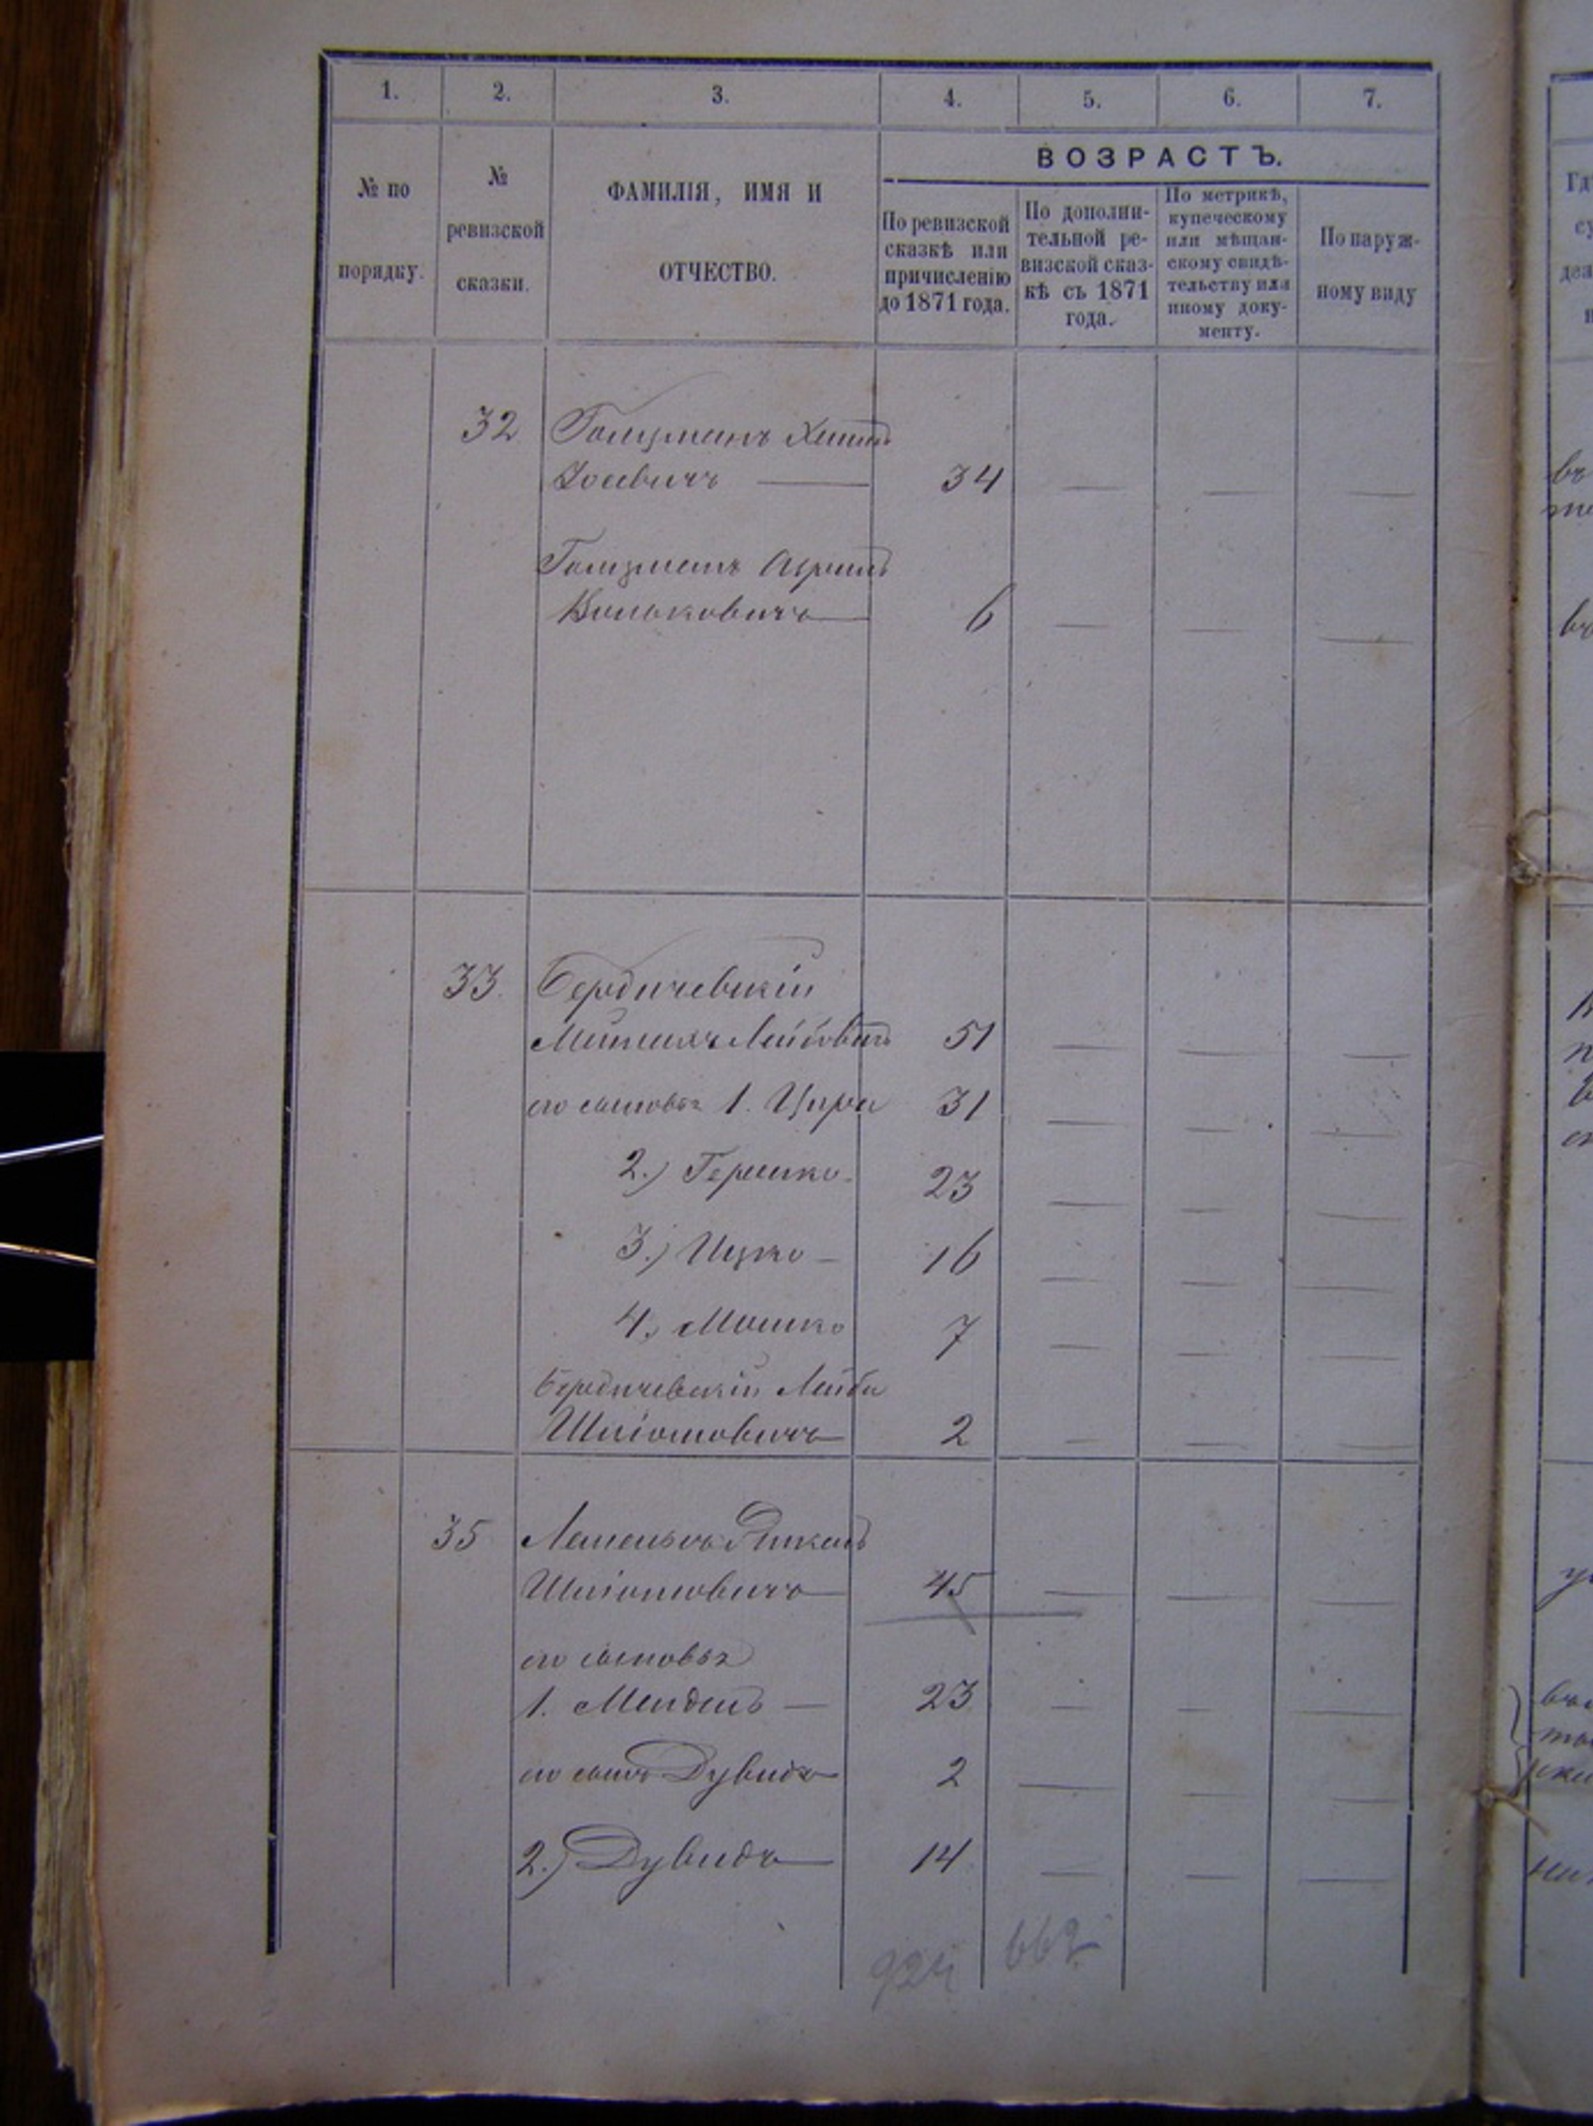 1. 2. 3. 4. 5. 6. 7.
№ по порядку.
№ ревизской сказки.
ФАМИЛІЯ, ИМЯ И ОТЧЕСТВО.
ВОЗРАСТЪ.
По ревизской сказкѣ или причисленію до 1871 года.
По дополнительной ревизской сказкѣ съ 1871 года.
По метрикѣ, купеческому или мѣщанскому свидѣтельству или иному документу.
По наружному виду
32 Гольцманъ
34
Гольцманъ
Вольковичъ 6
33 Бердичевскій
Лейбовичъ 51
его сыновья 1. 31
2.) Гершко 23
3.) Ицко 16
4.) Мошко 7
Бердичевскій Лейба
Шліомовичъ 2
35
Шліомовичъ 45
его сыновья
1. Мендель 23
его сынъ Дувидъ 2
2.) Дувидъ 14
924 662